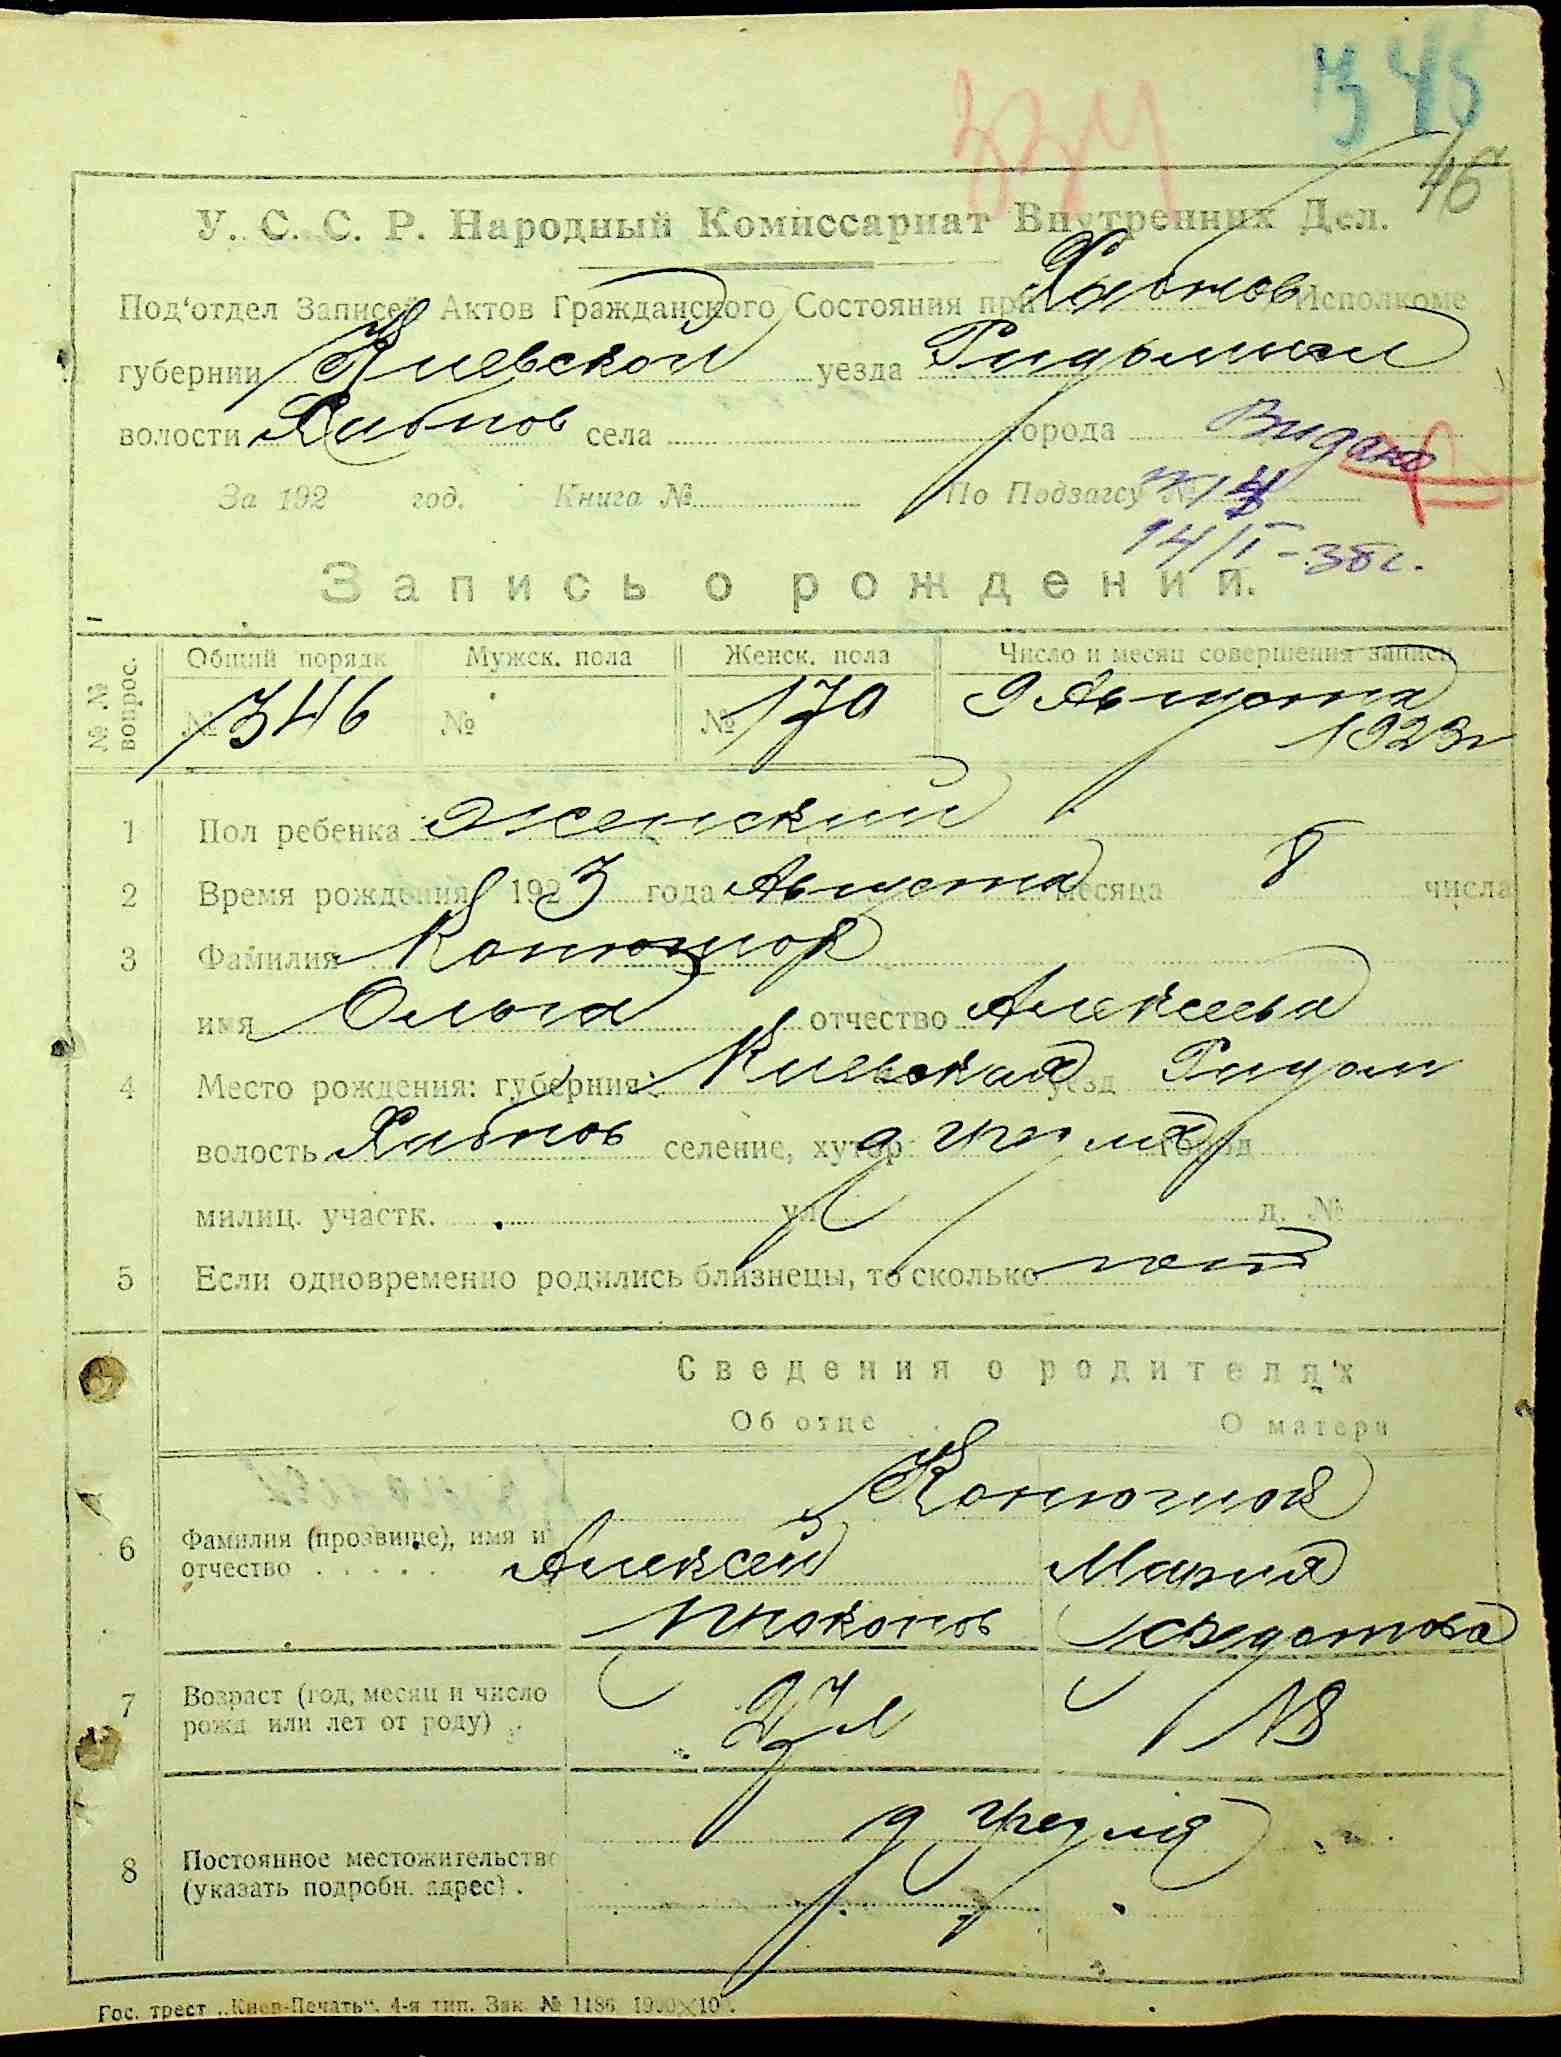 345
334
45
У. С. С. Р. Народный Комиссариат Внутренних Дел.
Под'отдел Записей Актов Гражданского Состояния при Хабнов Исполкоме
губернии Киевской уезда
волости Хабнов села города Видано
За 192 год. Книга № По Подзагсу №
14/I-38г.
Запись о рождении.
№№ вопрос. Общий порядк Мужск. пола Женск. пола Число и месяц совершения записи
№ 346 № № 170 9 Августа
1923г
1 Пол ребенка женский
2 Время рождения 1923 года Августа месяца 8 числа
3 Фамилия
имя Ольга отчество Алексеева
4 Место рождения: губерния: Киевская уезд Радом
волость Хабнов селение, хутор: д Грезля город
милиц. участк. ул д. №
5 Если одновременно родились близнецы, то сколько нет
Сведения о родителях
Об отце О матери
Конюшок
6 Фамилия (прозвище), имя и Алексей Мария
отчество . . . . . Прокопов Федотова
7 Возраст (год, месяц и число 23 л 18
рожд или лет от роду)
д Грезля
8 Постоянное местожительство
(указать подробн. адрес) .
Гос. трест „Киев-Печать“. 4-я тип. Зак. № 1186